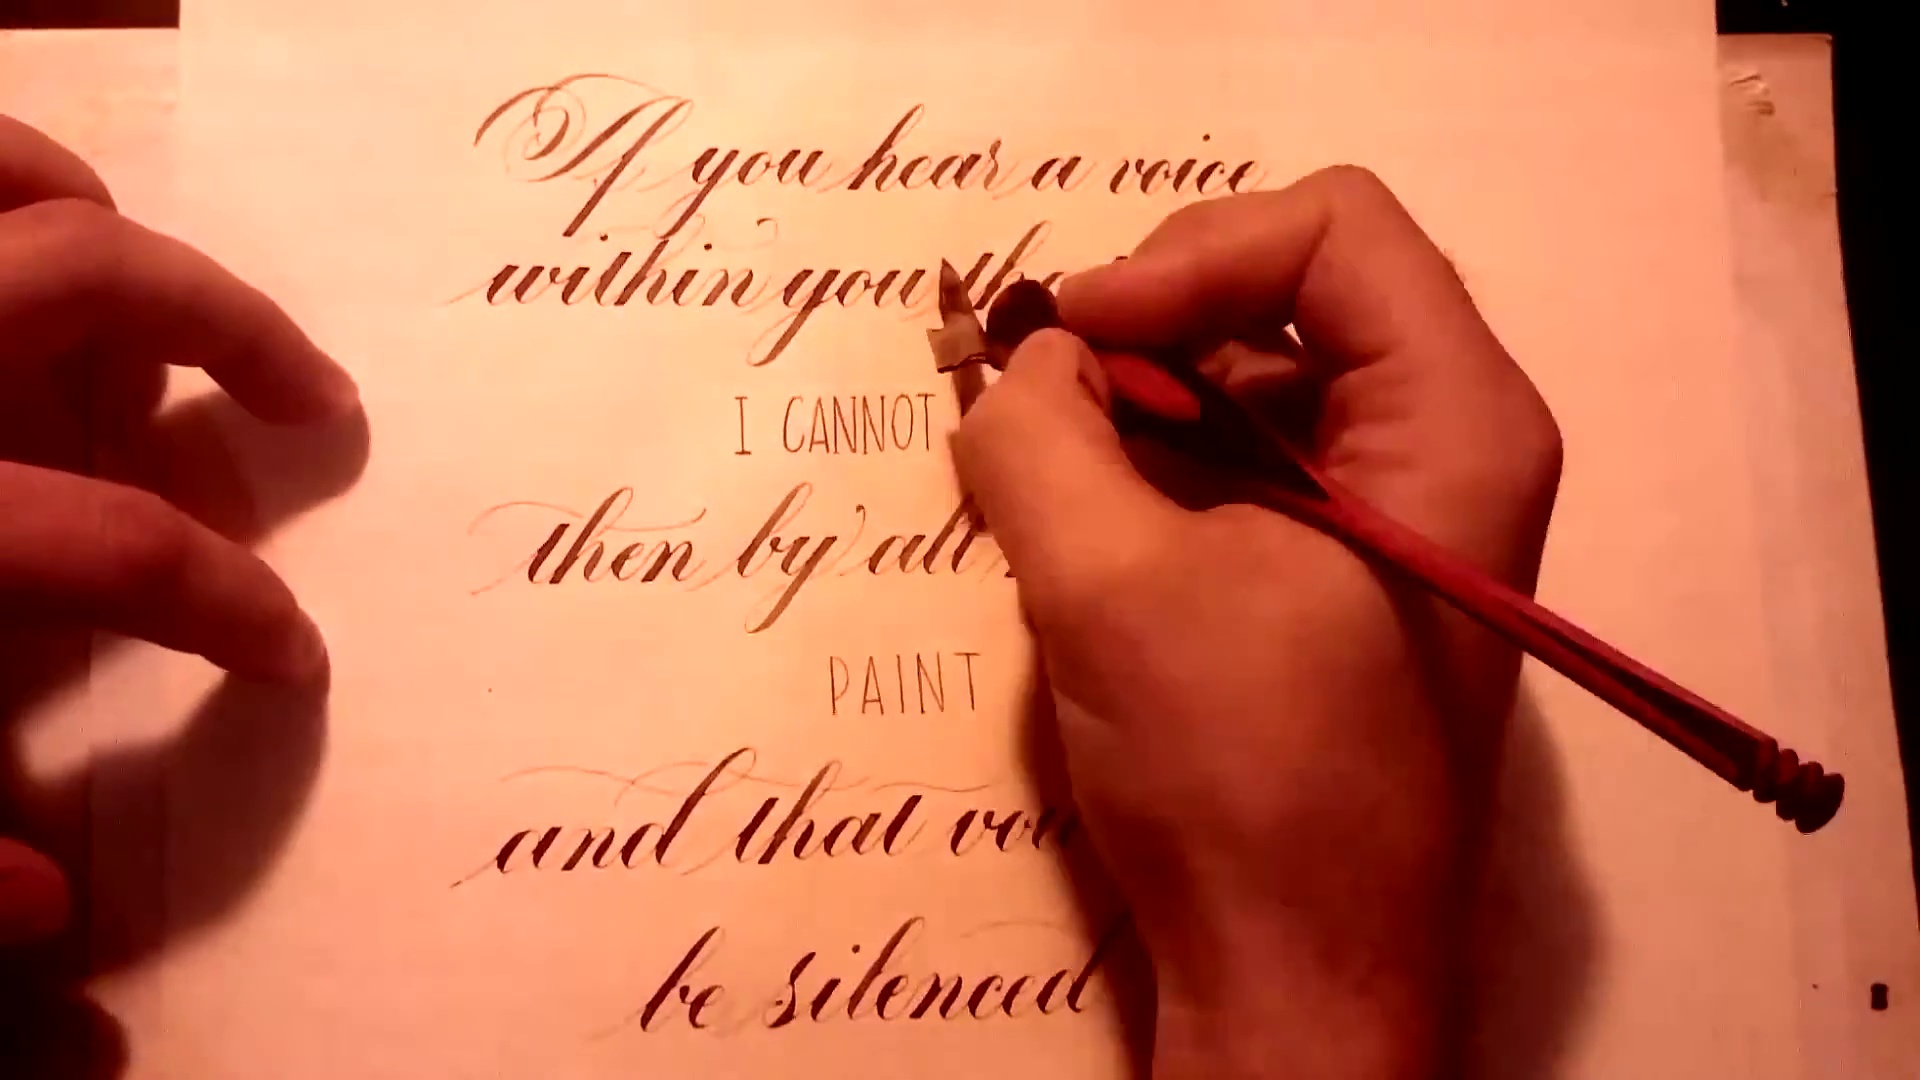 If you hear a voice
within you
I CANNOT
then by all
PAINT
and that
be silenced